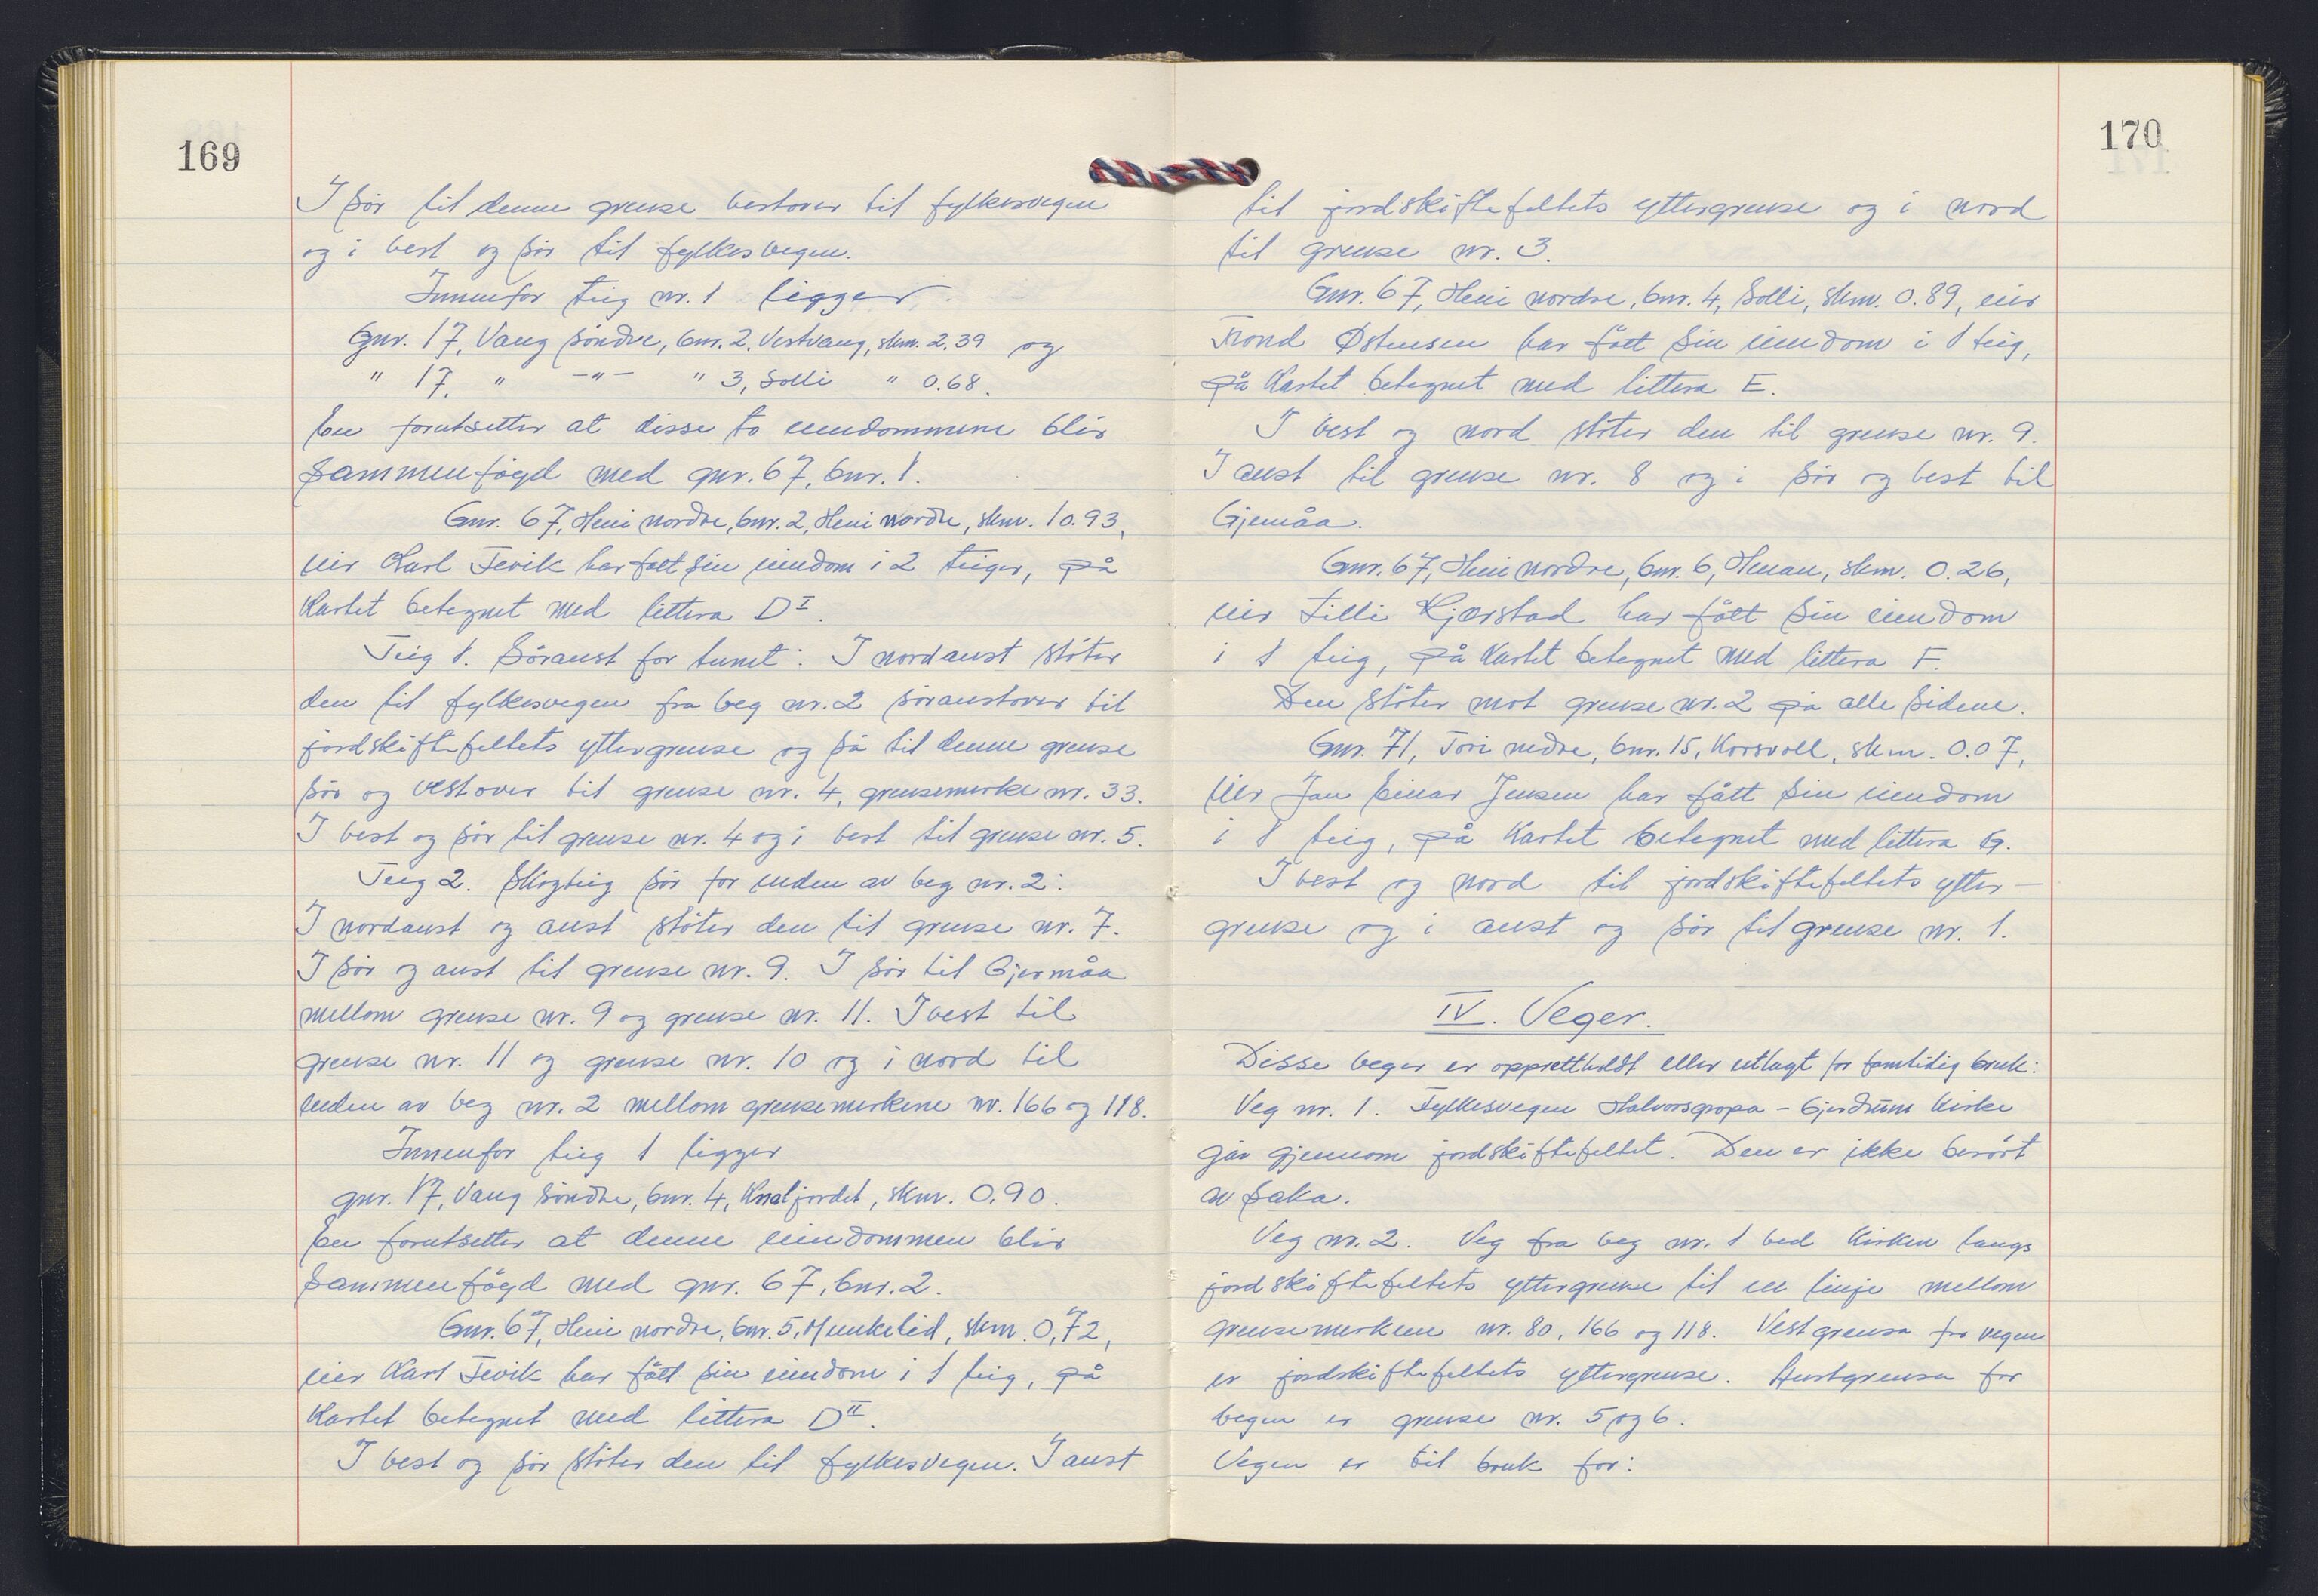 169
I sör til denne grense vestover til fylkesvegen
og i vest og sör til fylkesvegen.
Innenfor teig nr. 1 ligger
Gnr. 17, Vang söndre, bnr. 2, Vestvang, skm. 2.39 og
" 17, " -"- " 3, Solli " 0.68.
En forutsetter at disse to eiendommene blir
sammenföyd med gnr. 67, bnr. 1.
Gnr. 67, Heni nordre, bnr. 2, Heni nordre, skm. 10.93,
eier Karl Tevik har fått sin eiendom i 2 teiger, på
kartet betegnet med littera D I.
Teig 1. Söraust for tunet: I nordaust stöter
den til fylkesvegen fra veg nr. 2 söraustover til
jordskiftefeltets yttergrense og så til denne grense
sör og vestover til grense nr. 4, grensemerke nr. 33.
I vest og sör til grense nr. 4 og i vest til grense nr. 5.
Teig 2. Skogteig sör for enden av veg nr. 2:
I nordaust og aust stöter den til grense nr. 7.
I sör og aust til grense nr. 9. I sör til Gjermåa
mellom grense nr. 9 og grense nr. 11. I vest til
grense nr. 11 og grense nr. 10 og i nord til
enden av veg nr. 2 mellom grensemerkene nr. 166 og 118.
Innenfor teig 1 ligger
gnr. 17, Vang söndre, bnr. 4, Knaljordet, skm. 0.90.
En forutsetter at denne eiendommen blir
sammenföyd med gnr. 67, bnr. 2.
Gnr. 67, Heni nordre, bnr. 5, Munkelid, skm. 0,72,
eier Karl Tevik har fått sin eiendom i 1 teig, på
kartet betegnet med littera D II.
I vest og sör stöter den til fylkesvegen. I aust
170
til jordskiftefeltets yttergrense og i nord
til grense nr. 3.
Gnr. 67, Heni nordre, bnr. 4, Solli, skm. 0.89, eier
Trond Østensen har fått sin eiendom i 1 teig,
på kartet betegnet med littera E.
I vest og nord stöter den til grense nr. 9.
I aust til grense nr. 8 og i sör og vest til
Gjermåa.
Gnr. 67, Heni nordre, bnr. 6, Henan, skm. 0.26,
eier Lilli Kjærstad har fått sin eiendom
i 1 teig, på kartet betegnet med littera F.
Den stöter mot grense nr. 2 på alle sidene.
Gnr. 71, Tori nedre, bnr. 15, Korsvoll, skm. 0.07,
eier Jan Einar Jensen har fått sin eiendom
i 1 teig, på kartet betegnet med littera G.
I vest og nord til jordskiftefeltets ytter-
grense og i aust og sör til grense nr. 1.
IV. Veger.
Disse veger er opprettholdt eller utlagt for famtidig bruk:
Veg nr. 1. Fylkesvegen Halvorsgropa - Gjerdrum kirke
går gjennom jordskiftefeltet. Den er ikke berört
av saka.
Veg nr. 2. Veg fra veg nr. 1 ved kirken langs
jordskiftefeltets yttergrense til en linje mellom
grensemerkene nr. 80, 166 og 118. Vestgrensa for vegen
er jordskiftefeltets yttergrense. Austgrensa for
vegen er grense nr. 5 og 6.
Vegen er til bruk for: